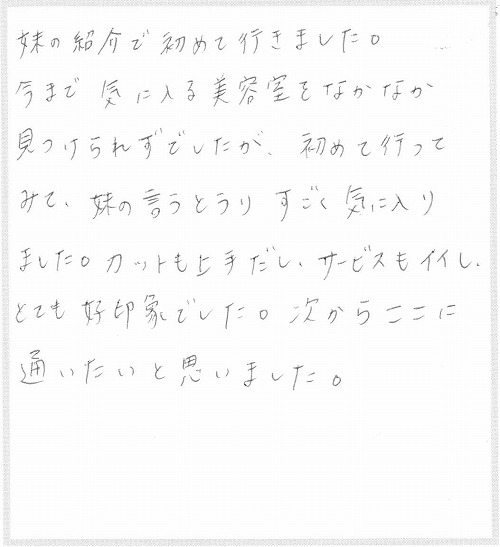 妹の紹介で初めて行きました。
今まで気に入る美容室をなかなか
見つけられずでしたが、初めて行って
みて、妹の言うとうりすごく気に入り
ました。カットも上手だし、サービスもイイし、
とても好印象でした。次からここに
通いたいと思いました。